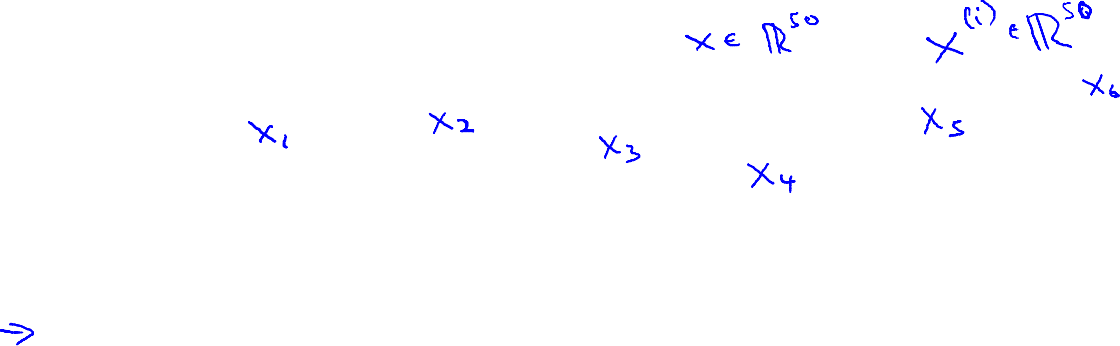 x ∈ ℝ⁵⁰ x⁽ⁱ⁾ ∈ ℝ⁵⁰
x₁ x₂ x₃ x₄ x₅ x₆
→